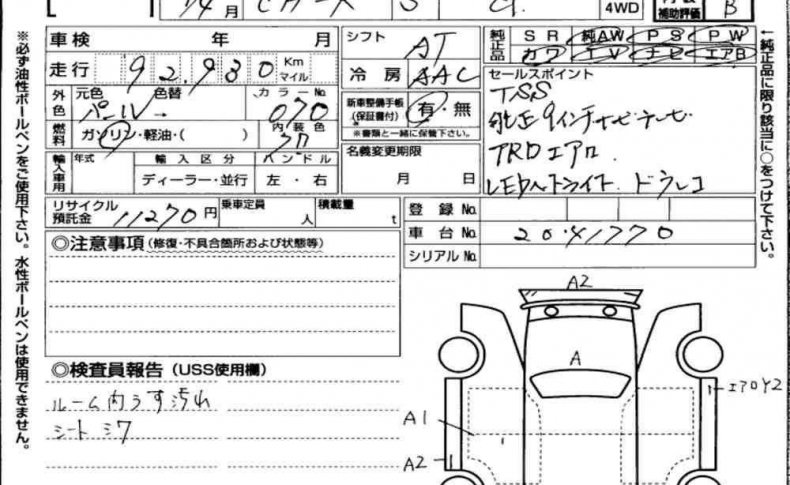 月 S 4WD 補助評価 B
車検 年 月
走行 92,930 Km マイル
外色 元色 色替 カラーNo.
パール 070
燃料 ガソリン・軽油・( ) 内装色
輸入車用 年式 輸入区分 ハンドル
ディーラー・並行 左・右
リサイクル預託金 11270円 乗車定員 人 積載量 t
シフト AT
冷房 AAC
新車整備手帳(保証書付) 有・無
※書類と一緒に保管下さい。
名義変更期限
月 日
純正品 SR 純AW PS PW
カワ TV ナビ エアB
セールスポイント
TSS
純正9インチナビ
TRDエアロ
LEDヘッドライト ドラレコ
登録No.
車台No. 2041770
シリアルNo.
◎注意事項(修復・不具合箇所および状態等)
◎検査員報告(USS使用欄)
ルーム内うす汚れ
シート シワ
A2
A
エアロY2
A1
A2
※必ず油性ボールペンをご使用下さい。水性ボールペンは使用できません。
←純正品に限り該当に○をつけて下さい。